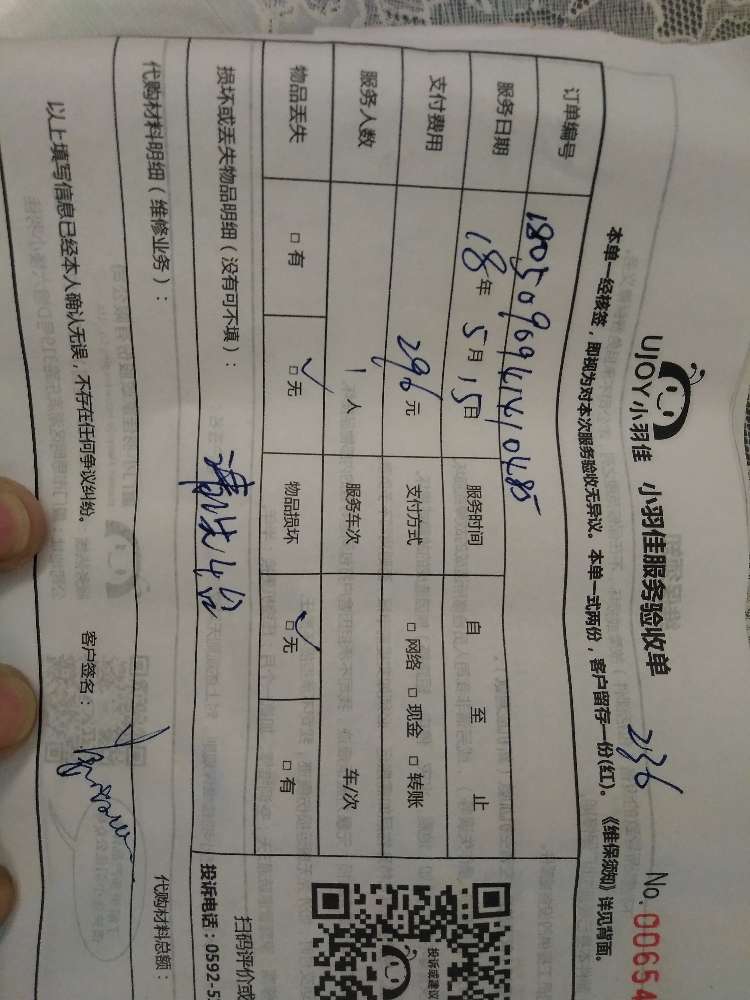 UJOY小羽佳 小羽佳服务验收单 No.00654
本单一经核签，即视为对本次服务验收无异议。本单一式两份，客户留存一份(红)。《维保须知》详见背面。
订单编号 18050909414110485
服务日期 18年 5月 15日 服务时间 自 至 止
支付费用 296元 支付方式 □网络 □现金 □转账
服务人数 1人 服务车次 车/次
物品丢失 □有 ☑无 物品损坏 ☑无 □有
损坏或丢失物品明细（没有可不填）：
代购材料明细（维修业务）： 代购材料总额：
以上填写信息已经本人确认无误，不存在任何争议纠纷。 客户签名：
投诉或建议
扫码评价或
投诉电话：0592-5